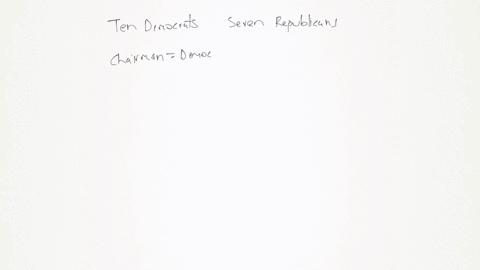 Ten Dimocrats Seven Republicans
Chairman = Democ